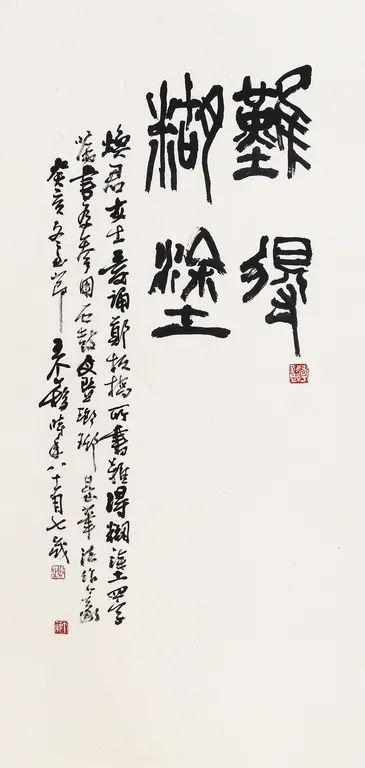 難得
糊塗
煥君女士誦鄭板橋所書難得糊塗四字
書參用石鼓文暨瑯琊筆法
癸亥冬至節王个簃時年八十有七歲